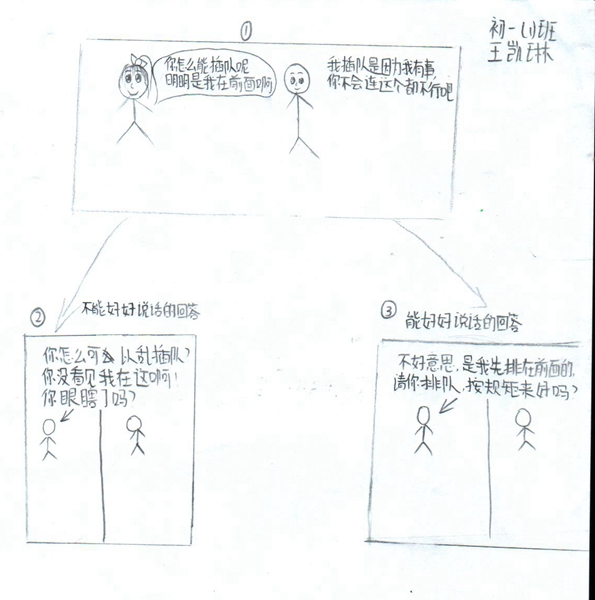 ①
初一(1)班
王凯琳
你怎么能插队呢
明明是我在前面啊
我插队是因为我有事,
你不会连这个都不行吧
②
不能好好说话的回答
你怎么可以乱插队?
你没看见我在这啊!
你眼瞎了吗?
③
能好好说话的回答
不好意思,是我先排在前面的,
请你排队,按规矩来好吗?